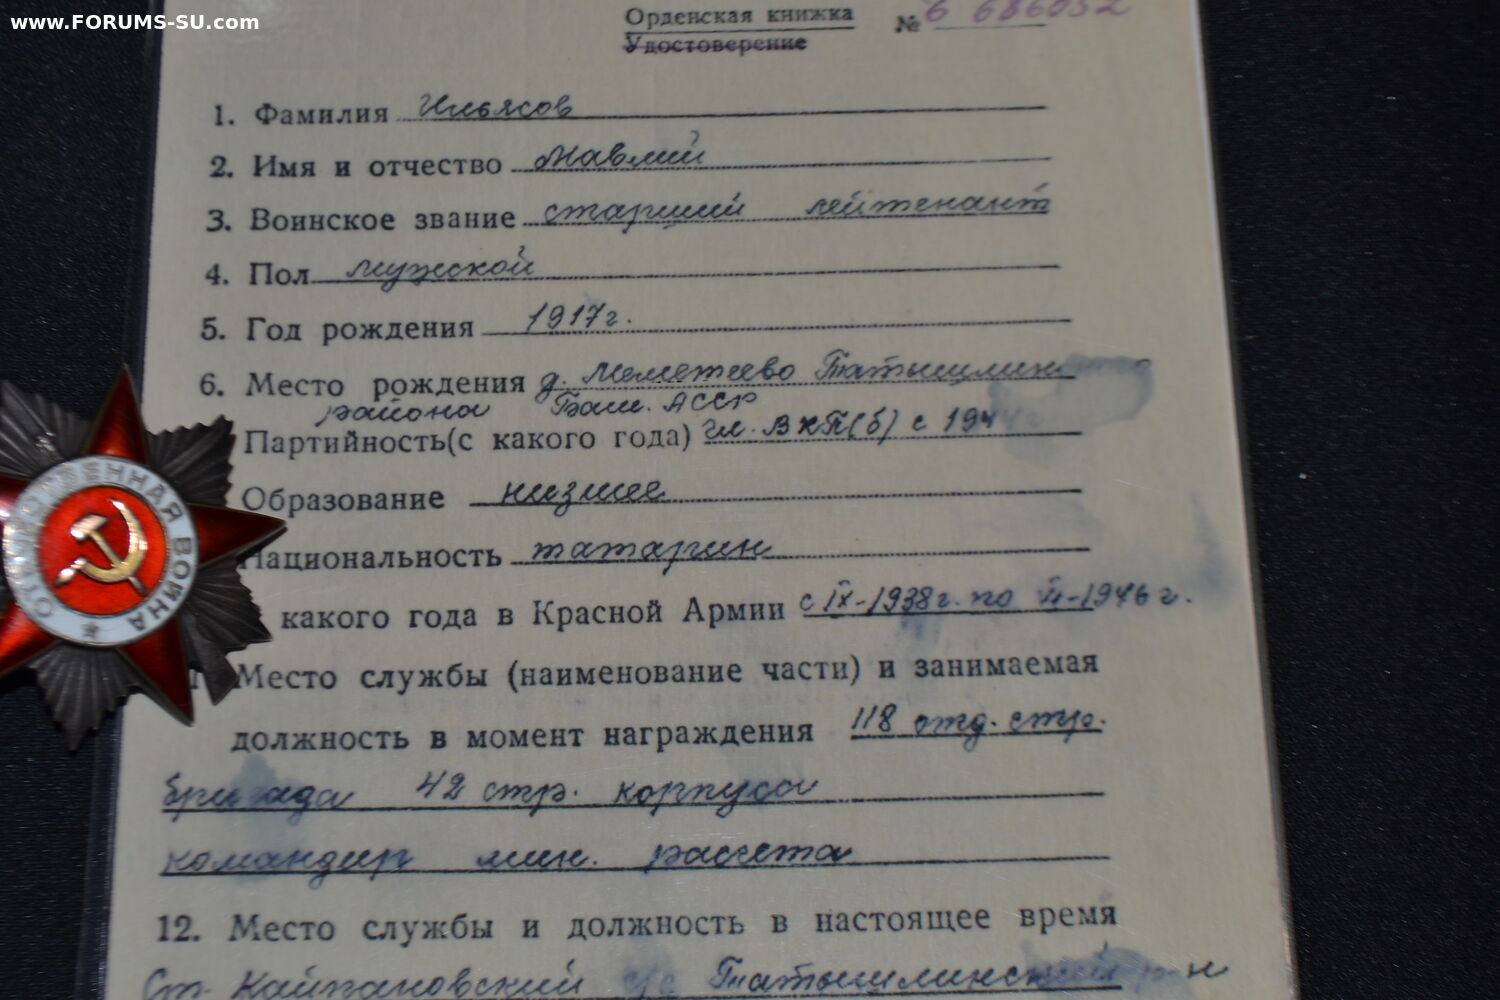 www.FORUMS-SU.com
Орденская книжка № Б 686052
Удостоверение
1. Фамилия Ильясов
2. Имя и отчество Мавлий
3. Воинское звание старший лейтенант
4. Пол мужской
5. Год рождения 1917г.
6. Место рождения д. Татышлинского
района Баш. АССР
Партийность(с какого года) чл. ВКП(б) с 194
Образование низшее
Национальность татарин
какого года в Красной Армии с IX-1938г. по -1946г.
Место службы (наименование части) и занимаемая
должность в момент награждения 118 отд. стр.
бригада 42 стр. корпуса
командир мин. расчета
12. Место службы и должность в настоящее время
Ст. Кайпановский с/с Татышлинский р-н
ОТЕЧЕСТВЕННАЯ ВОЙНА